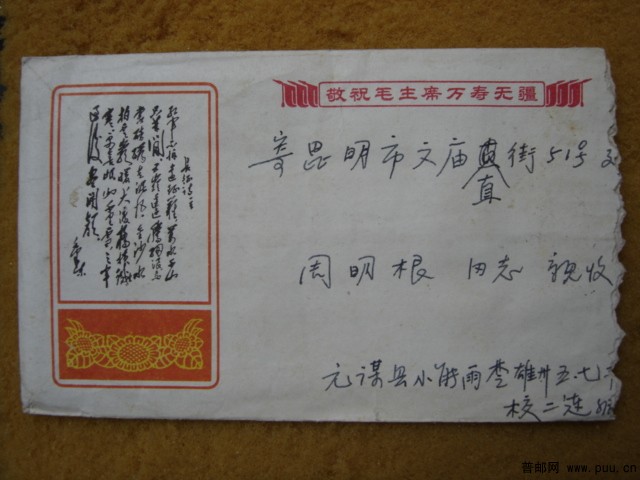 敬祝毛主席万寿无疆
寄昆明市文庙直街51号交
周明根 同志 亲收
元谋县小能雨楚雄州五.七干
校二连
长征诗一首
红军不怕远征难万水千山
只等闲五岭逶迤腾细浪乌
蒙磅礴走泥丸金沙水
拍云崖暖大渡桥横铁索
寒更喜岷山千里雪三军
过后尽开颜
毛泽东
普邮网 www.puu.cn